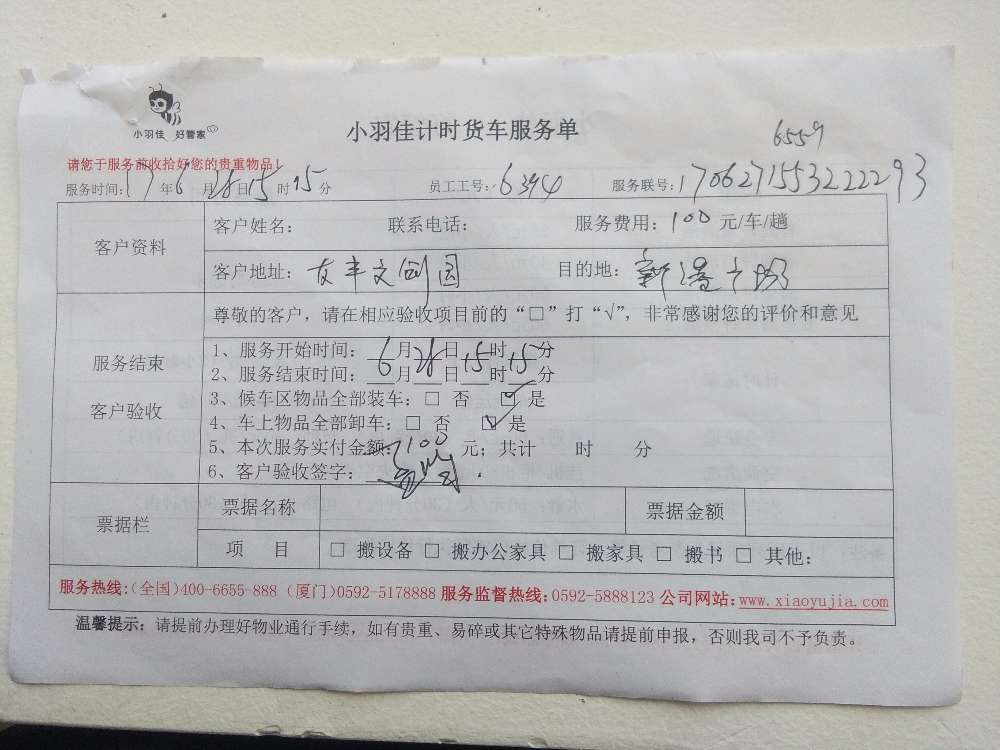 小羽佳 好管家
小羽佳计时货车服务单
6559
请您于服务前收拾好您的贵重物品！
服务时间：17年6月28日15时15分 员工工号：6394 服务联号：170627155322293
客户资料
客户姓名： 联系电话： 服务费用：100元/车/趟
客户地址：友丰文创园 目的地：新港广场
服务结束
客户验收
尊敬的客户，请在相应验收项目前的“□”打“√”，非常感谢您的评价和意见
1、服务开始时间：6月28日15时15分
2、服务结束时间：__月__日__时__分
3、候车区物品全部装车：□ 否 ☑ 是
4、车上物品全部卸车：□ 否 ☑ 是
5、本次服务实付金额：100元；共计 时 分
6、客户验收签字：
票据栏
票据名称 票据金额
项 目 □ 搬设备 □ 搬办公家具 □ 搬家具 □ 搬书 □ 其他：
服务热线：(全国)400-6655-888 (厦门)0592-5178888 服务监督热线：0592-5888123 公司网站：www.xiaoyujia.com
温馨提示：请提前办理好物业通行手续，如有贵重、易碎或其它特殊物品请提前申报，否则我司不予负责。